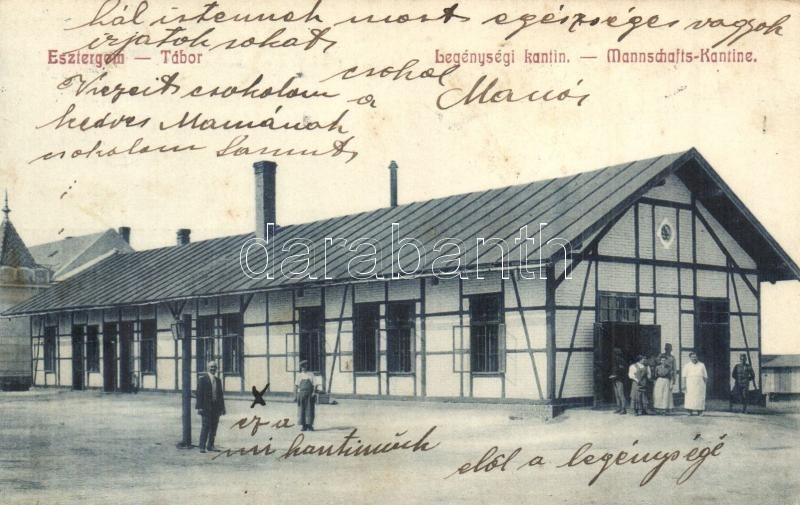 hál istennek most egészséges vagyok
irjatok sokat
Esztergom — Tábor
Legénységi kantin. — Mannschafts-Kantine.
csokol
Manós
Vizeit csokolom a
kedves Mamának
csokolom
darabanth
x
ez a
mi kantinünk
elöl a legénységé